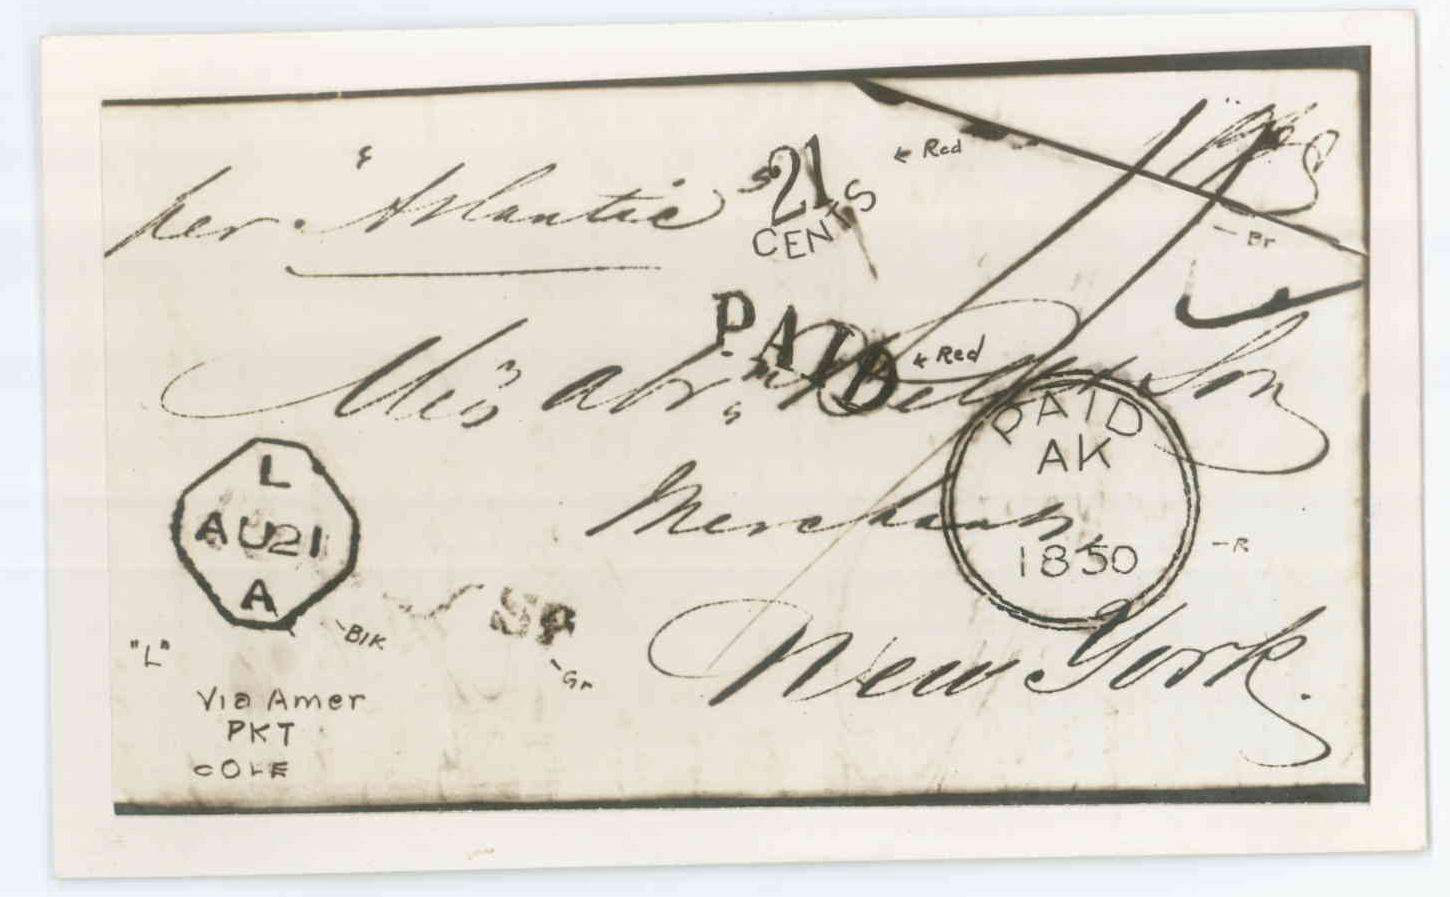 per "Atlantic"
21
CENTS
← Red
Br
PAID
← Red
Abrm Bell & Son
Merchants
New York.
PAID
AK
1850
- R
L
AU21
A
Blk
"L"
Gr
Via Amer
PKT
COLE